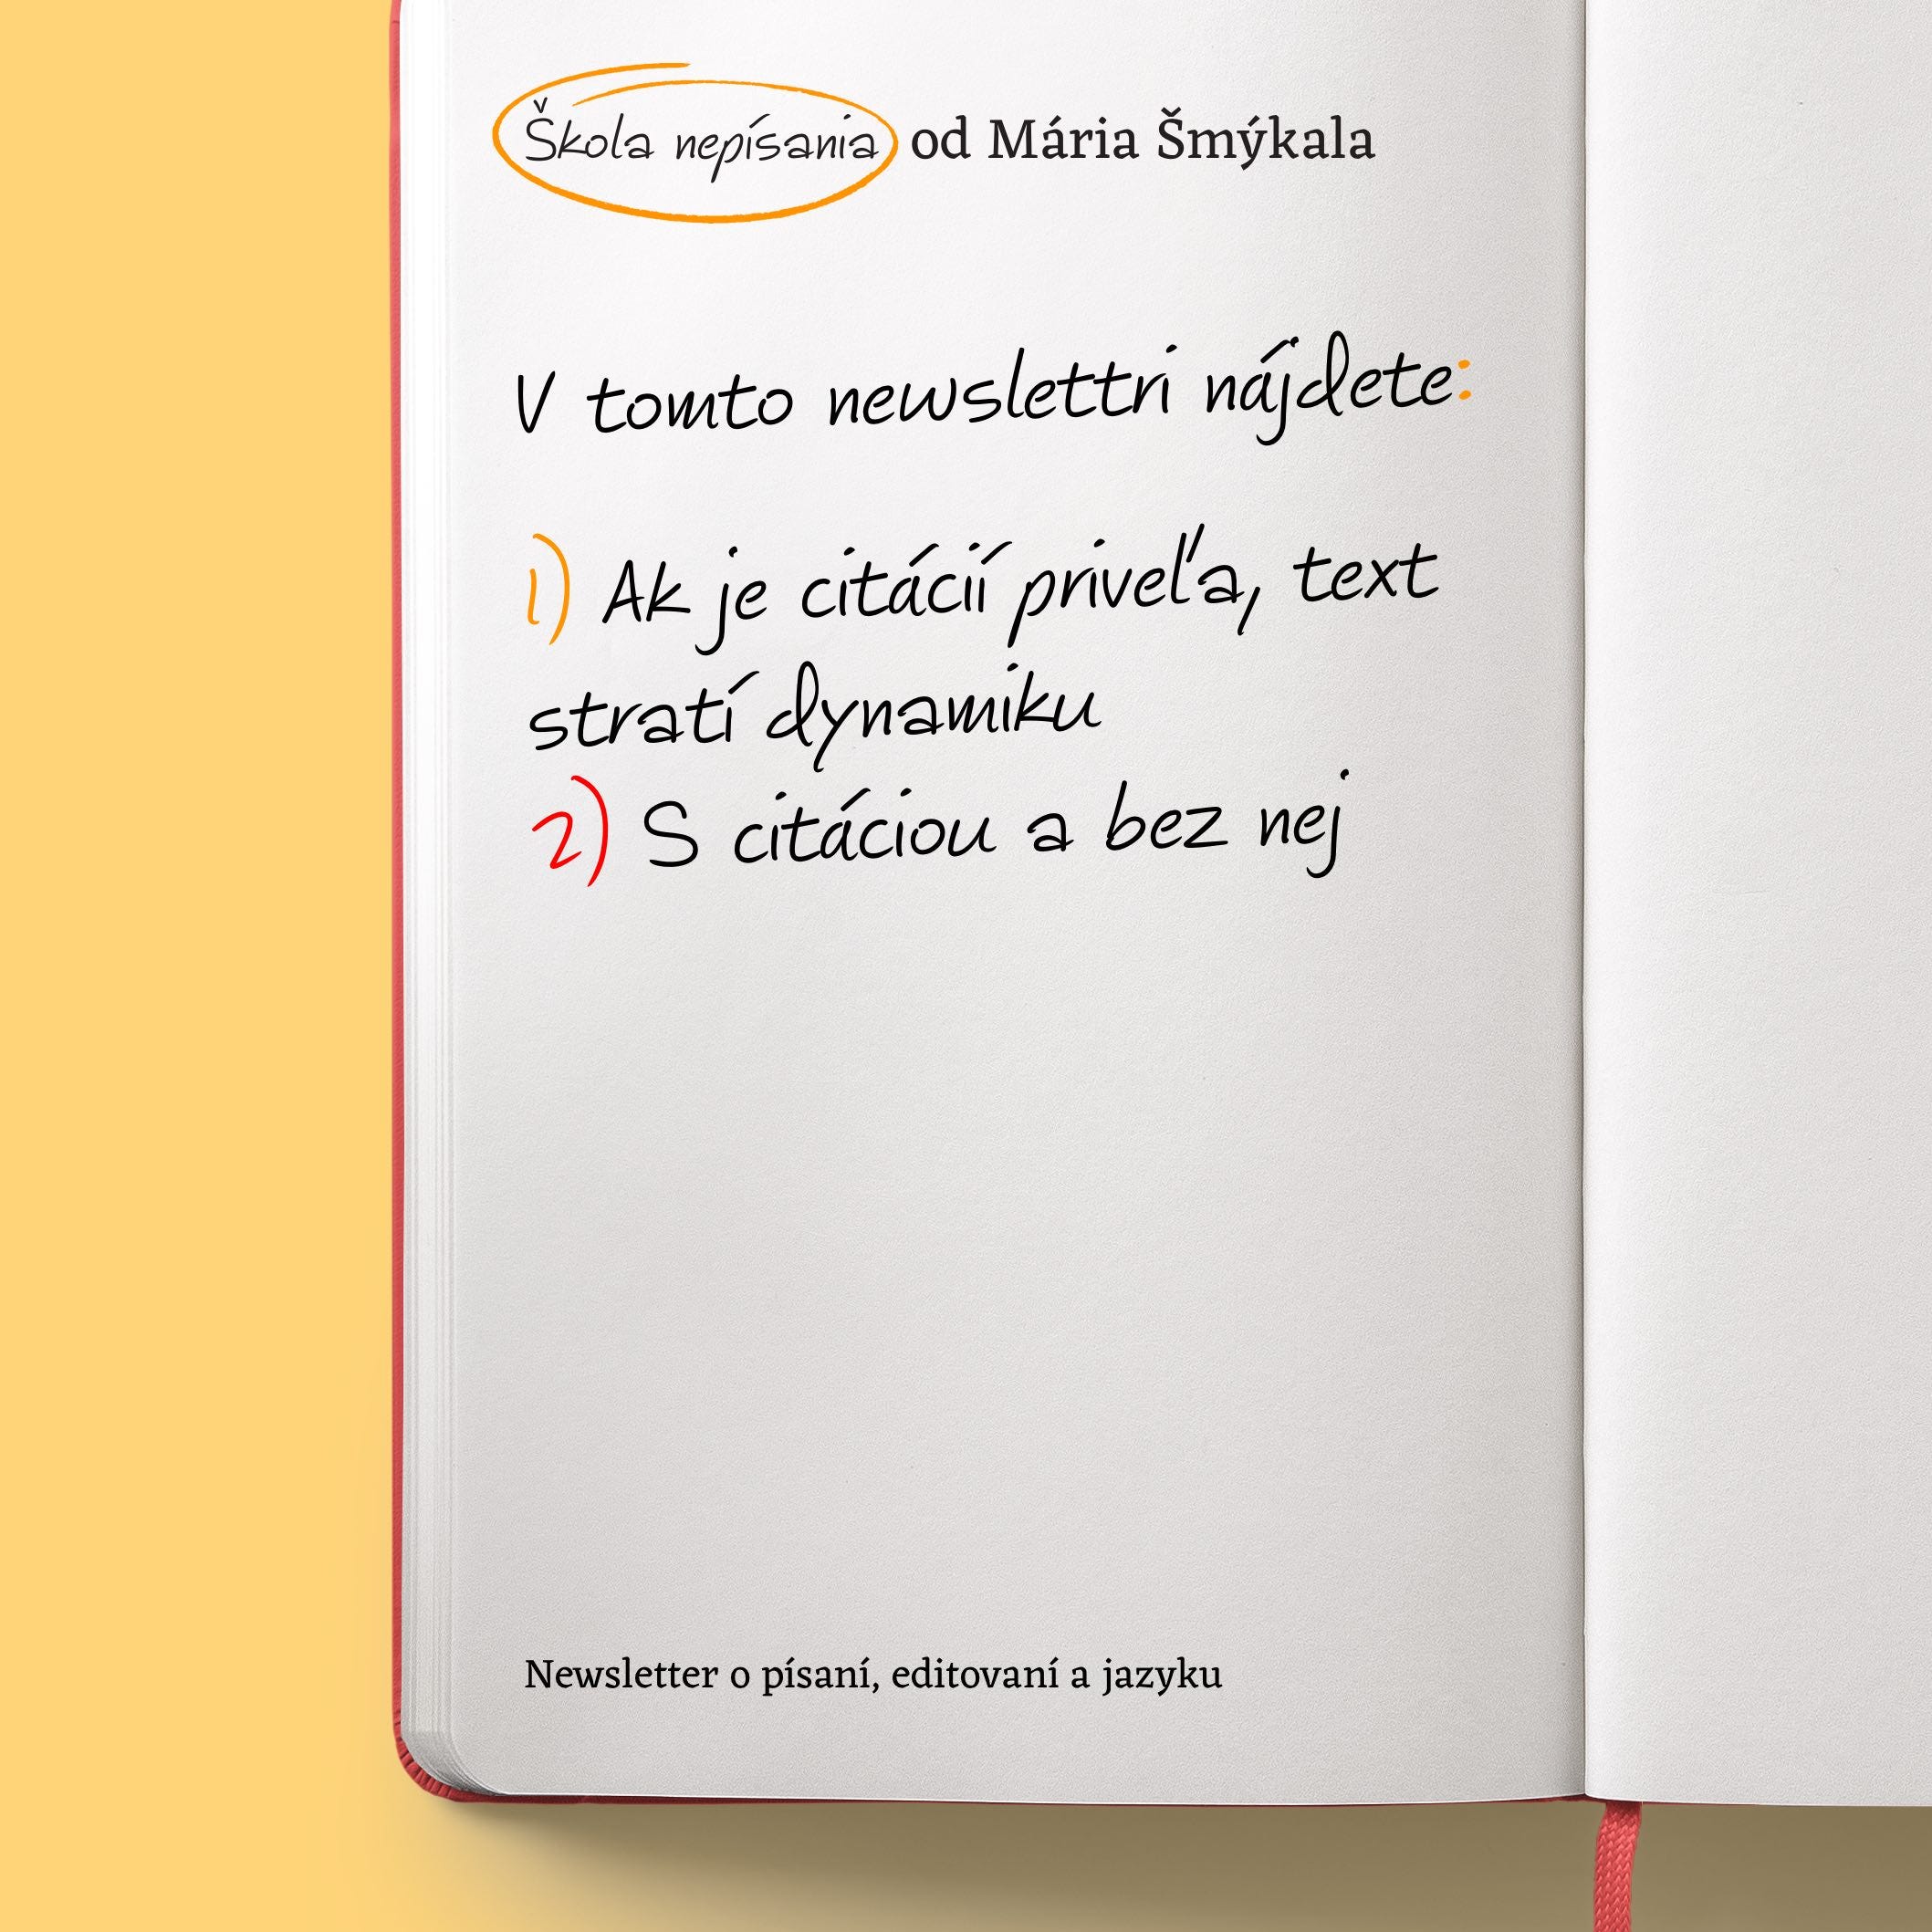 Škola nepísania od Mária Šmýkala
V tomto newslettri nájdete:
1) Ak je citácií priveľa, text
stratí dynamiku
2) S citáciou a bez nej
Newsletter o písaní, editovaní a jazyku